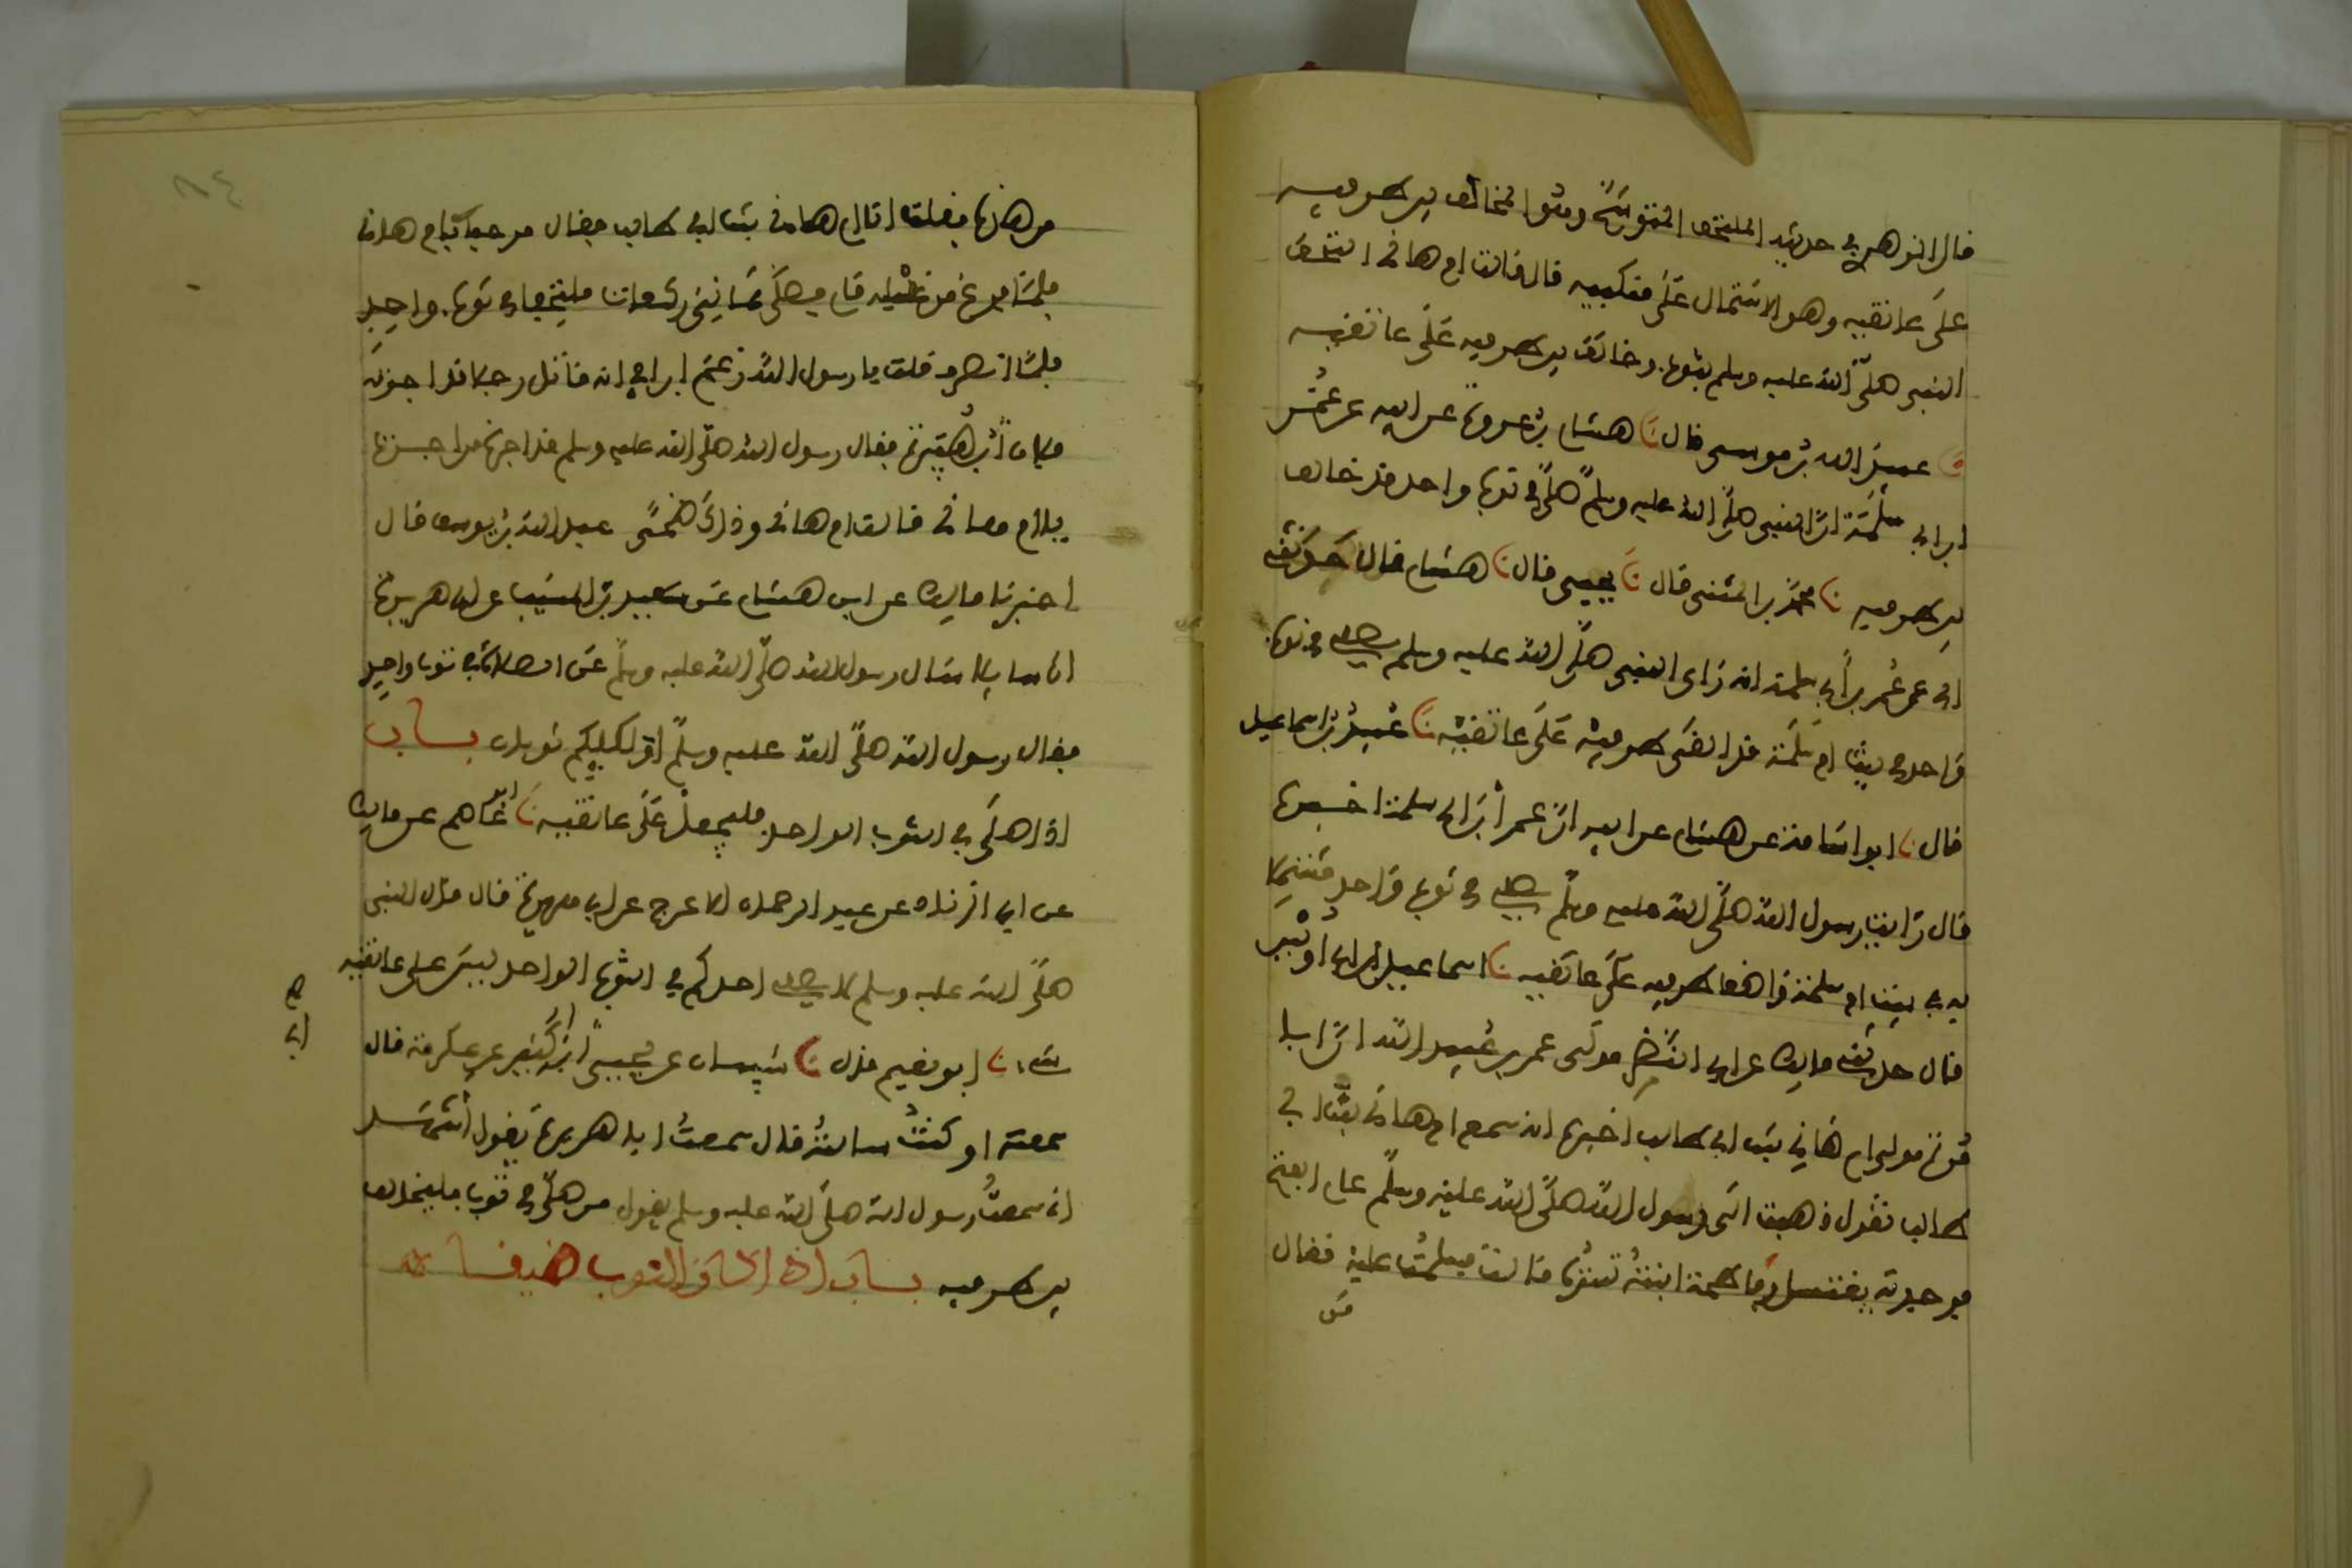 قال الزهري في حديثه الملتحف المتوشح وهو المخالف بين طرفيه
على عاتقيه وهو الاشتمال على منكبيه قال قالت ام هاني التحف
النبي صلى الله عليه وسلم بثوب وخالف بين طرفيه على عاتقيه
نا عبيد الله بن موسى قال نا هشام بن عروة عن ابيه عن عمر
ابن ابي سلمة ان النبي صلى الله عليه وسلم صلى في ثوب واحد قد خالف
بين طرفيه نا محمد بن المثنى قال نا يحيى قال نا هشام قال حدثني
ابي عن عمر بن أبي سلمة انه رأى النبي صلى الله عليه وسلم يصلي في ثوب
واحد في بيت ام سلمة قد القى طرفيه على عاتقيه نا عبيد بن اسماعيل
قال نا ابو اسامة عن هشام عن ابيه ان عمر بن ابي سلمة اخبره
قال رأيت رسول الله صلى الله عليه وسلم يصلي في ثوب واحد مشتملا
به في بيت ام سلمة واضعا طرفيه على عاتقيه نا اسماعيل بن ابي أويس
قال حدثني مالك عن ابي النضر مولى عمر بن عبيد الله ان ابا
مرة مولى ام هاني بنت ابي طالب اخبره انه سمع ام هاني بنت ابي
طالب تقول ذهبت الى رسول الله صلى الله عليه وسلم عام الفتح
فوجدته يغتسل وفاطمة ابنته تستره قالت فسلمت عليه فقال
من
٨٤
من هذه فقلت انا ام هاني بنت ابي طالب فقال مرحبا بام هاني
فلما فرغ من غسله قام فصلى ثماني ركعات ملتحفا في ثوب واحد
فلما انصرف قلت يا رسول الله زعم ابن امي انه قاتل رجلا قد اجرته
فلان بن هبيرة فقال رسول الله صلى الله عليه وسلم قد اجرنا من اجرت
يا ام هاني قالت ام هاني وذلك ضحى عبد الله بن يوسف قال
اخبرنا مالك عن ابن هشام عن سعيد بن المسيب عن ابي هريرة
ان سايلا سال رسول الله صلى الله عليه وسلم عن الصلاة في ثوب واحد
فقال رسول الله صلى الله عليه وسلم أولكلكم ثوبان باب
اذا صلى في الثوب الواحد فليجعل على عاتقيه نا ابو عاصم عن مالك
عن ابي الزناد عن عبد الرحمان الاعرج عن ابي هريرة قال قال النبي
صلى الله عليه وسلم لا يصلي احدكم في الثوب الواحد ليس على عاتقيه
شيء نا ابو نعيم قال نا شيبان عن يحيى بن ابي كثير عن عكرمة قال
سمعته او كنت سألته قال سمعت ابا هريرة يقول أشهد
اني سمعت رسول الله صلى الله عليه وسلم يقول من صلى في ثوب فليخالف
بين طرفيه باب اذا كان الثوب ضيقا